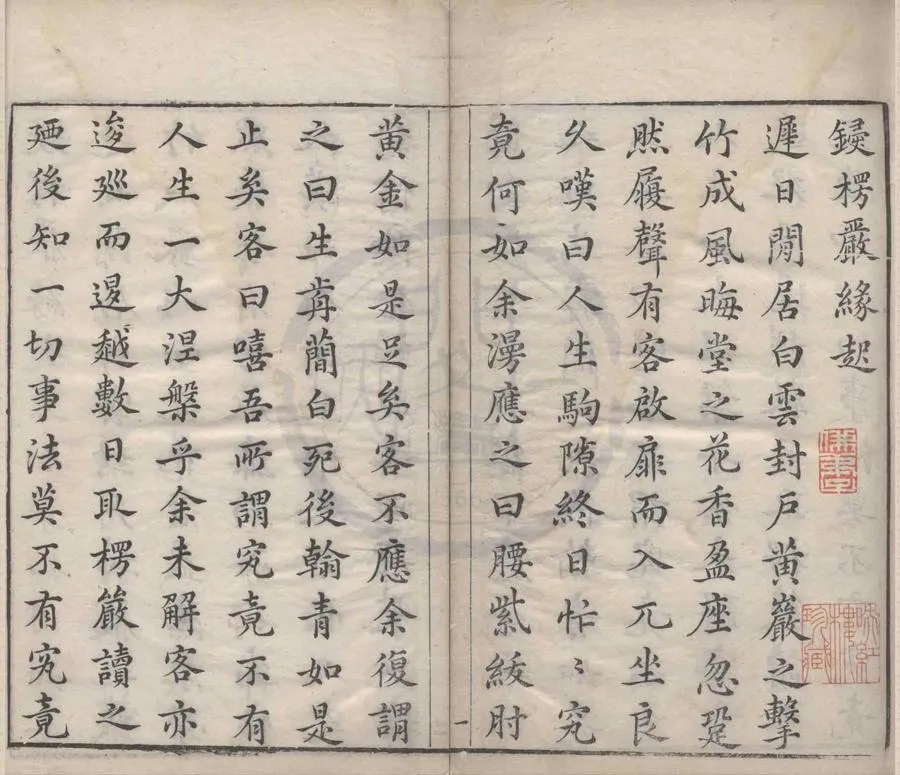 鋟楞嚴緣起
遲日閒居白雲封戶黄巖之擊
竹成風晦堂之花香盈座忽跫
然履聲有客啟扉而入兀坐良
久嘆曰人生駒隙終日忙〻究
竟何如余漫應之曰腰紫綬肘
黃金如是足矣客不應余復謂
之曰生前簡白死後翰青如是
止矣客曰嘻吾所謂究竟不有
人生一大涅槃乎余未解客亦
逡巡而退越數日取楞嚴讀之
廼後知一切事法莫不有究竟